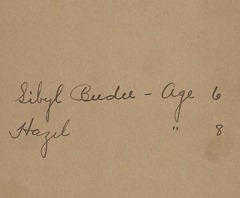 Sibyl Beedee - Age 6
Hazel " 8